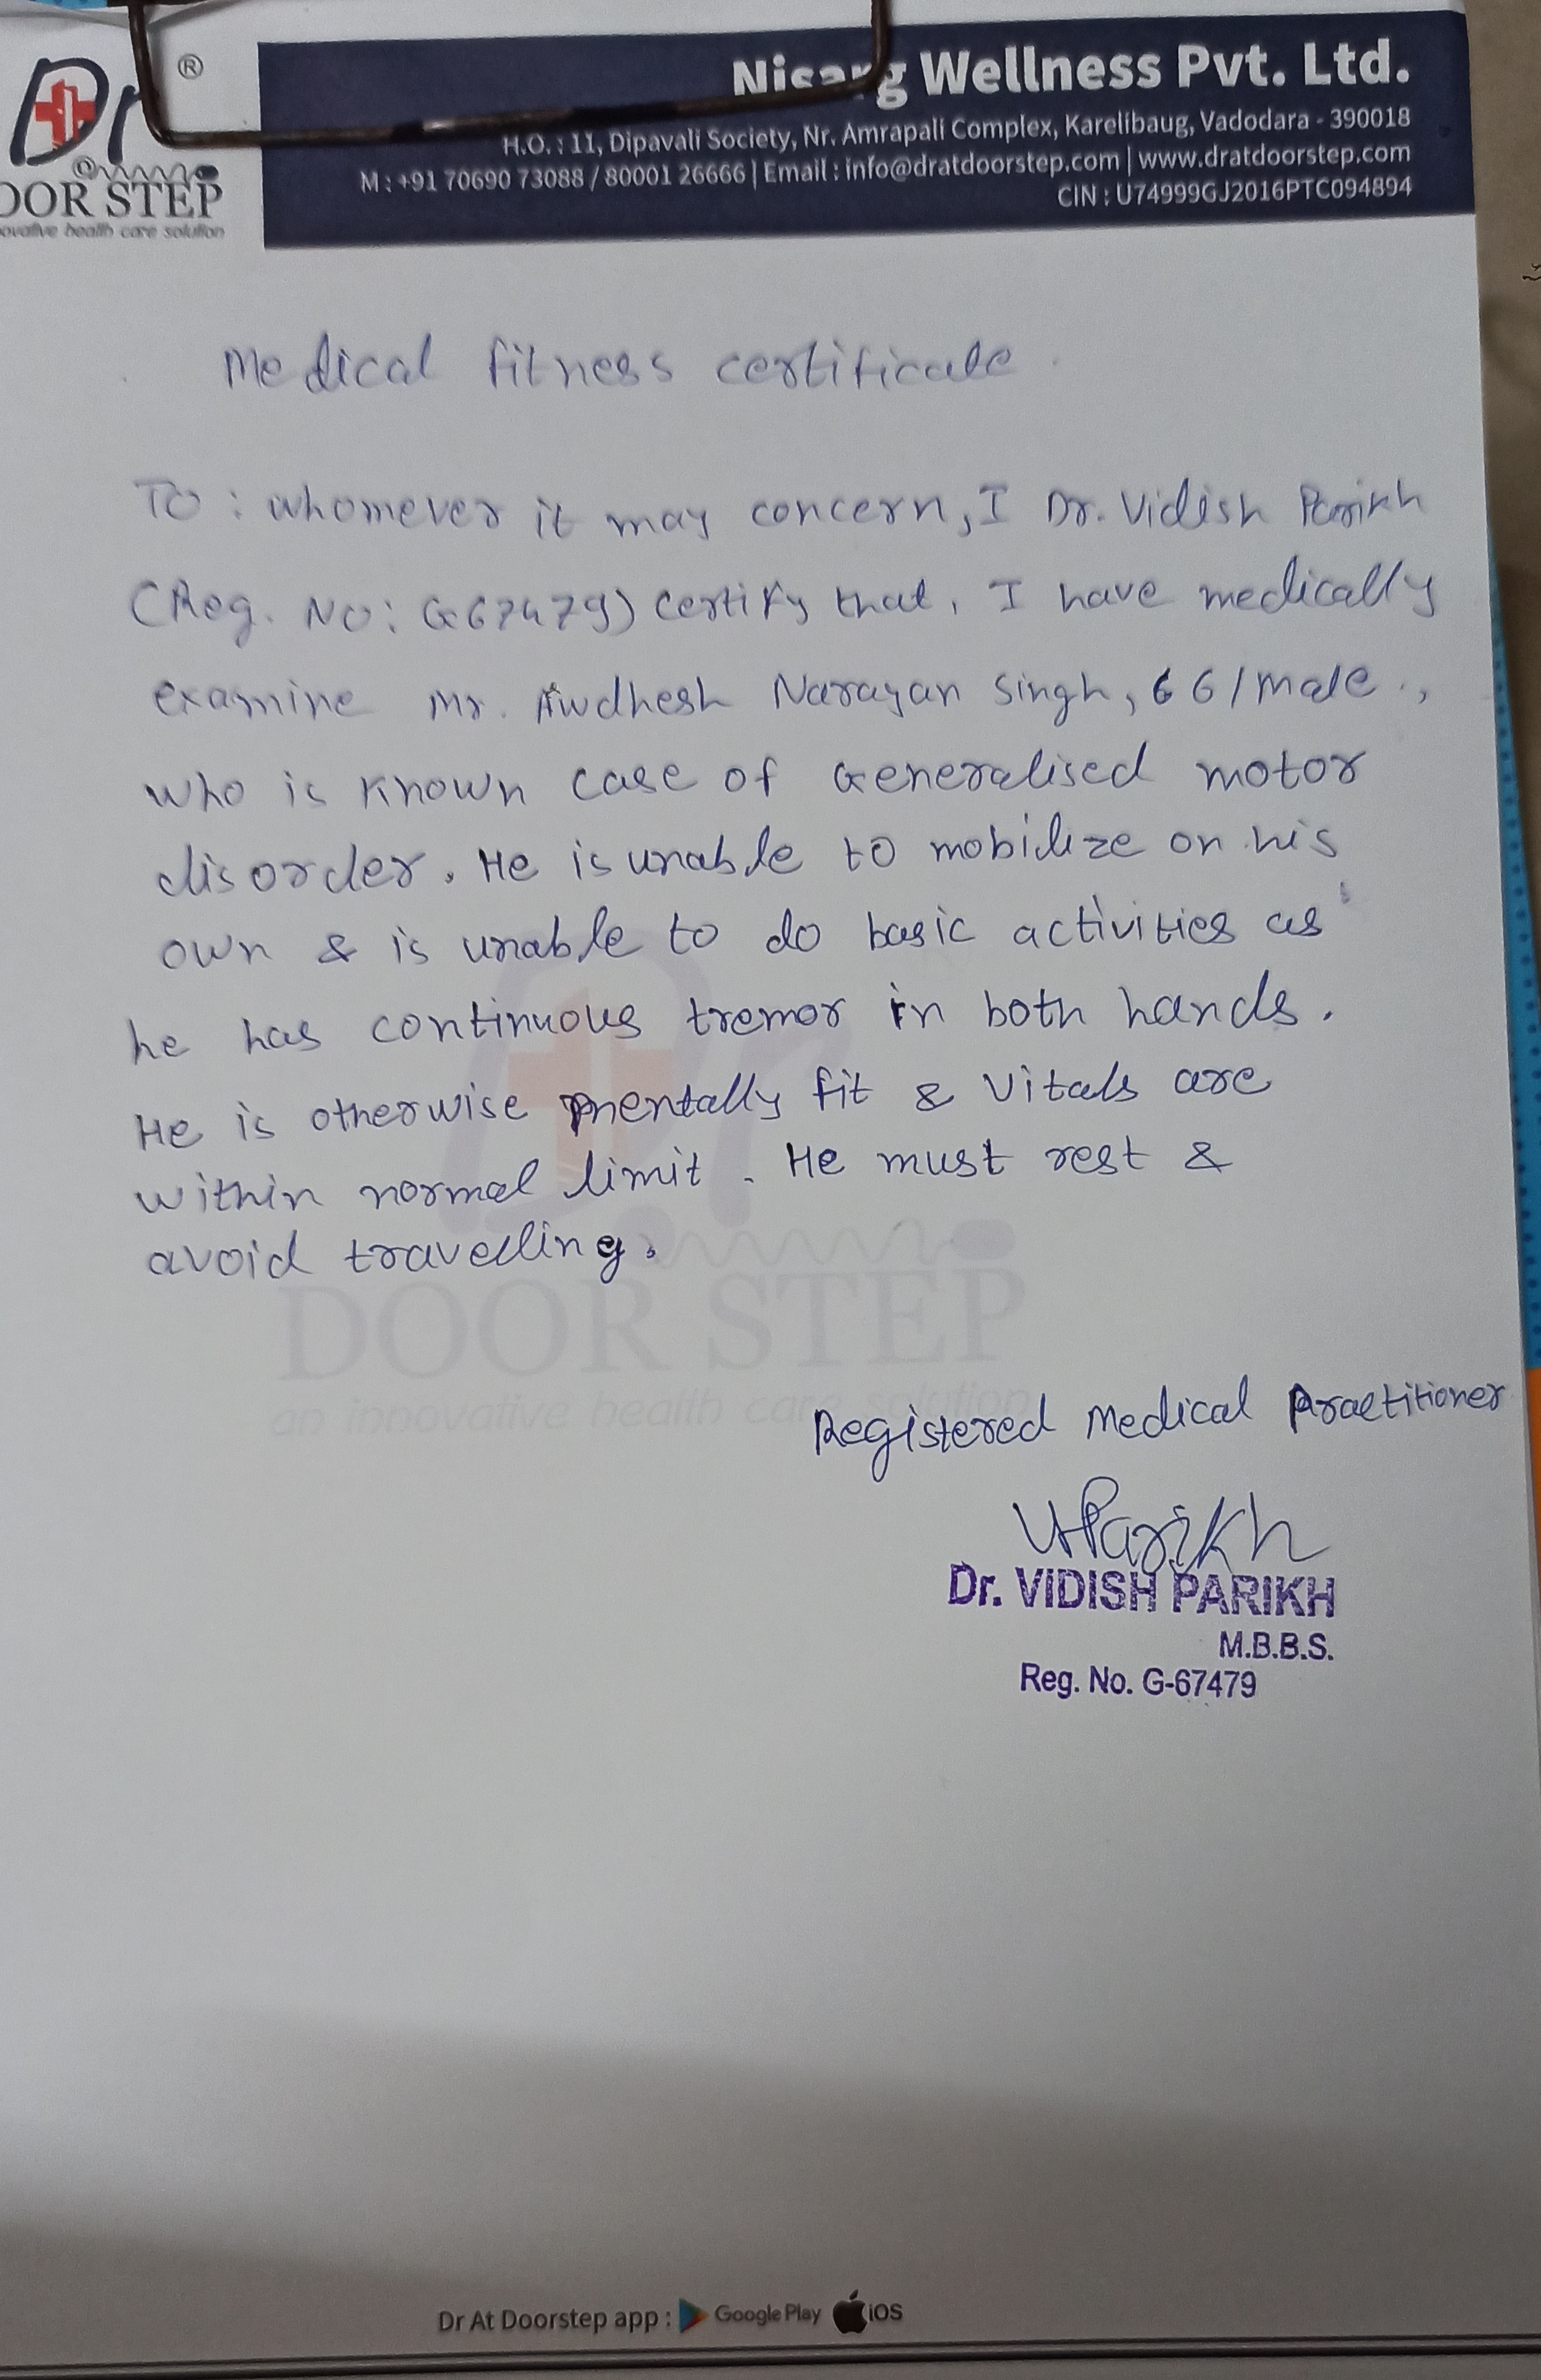 Dr ®
@
DOOR STEP
ovative health care solution
Nisarg Wellness Pvt. Ltd.
H.O. : 11, Dipavali Society, Nr. Amrapali Complex, Karelibaug, Vadodara - 390018
M : +91 70690 73088 / 80001 26666 | Email : info@dratdoorstep.com | www.dratdoorstep.com
CIN : U74999GJ2016PTC094894
Medical fitness certificate.
To : whomever it may concern, I Dr. Vidish Parikh
(Reg. No: G67479) certify that, I have medically
examine Mr. Awdhesh Narayan Singh, 66/male.,
who is known case of Generalised motor
disorder. He is unable to mobilize on his
own & is unable to do basic activities as
he has continuous tremor in both hands.
He is otherwise mentally fit & vitals are
within normal limit. He must rest &
avoid travelling.
Dr
DOOR STEP
an innovative health care solution
Registered Medical Practitioner
VParikh
Dr. VIDISH PARIKH
M.B.B.S.
Reg. No. G-67479
Dr At Doorstep app : Google Play iOS